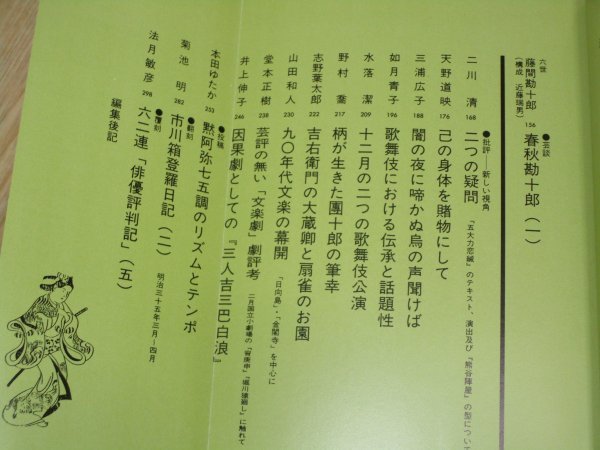 ●芸談
六世 藤間勘十郎 156 春秋勘十郎（一）
（構成 近藤瑞男）
●批評―新しい視角
二川 清 168 二つの疑問 「五大力恋緘」のテキスト、演出及び「熊谷陣屋」の型につい
天野道映 176 己の身体を賭物にして
三浦広子 188 闇の夜に啼かぬ烏の声聞けば
如月青子 196 歌舞伎における伝承と話題性
水落 潔 209 十二月の二つの歌舞伎公演
野村 喬 217 柄が生きた團十郎の筆幸
志野葉太郎 222 吉右衛門の大蔵卿と扇雀のお園
山田和人 230 九〇年代文楽の幕開 「日向島」・「金閣寺」を中心に
堂本正樹 238 芸評の無い「文楽劇」劇評考 二月国立小劇場の「宵庚申」「堀川猿廻し」に触れて
井上伸子 246 因果劇としての『三人吉三巴白浪』
●投稿
本田ゆたか 253 黙阿弥七五調のリズムとテンポ
●翻刻
菊池 明 282 市川箱登羅日記（二） 明治三十五年三月―四月
●覆刻
法月敏彦 298 六二連「俳優評判記」（五）
編集後記